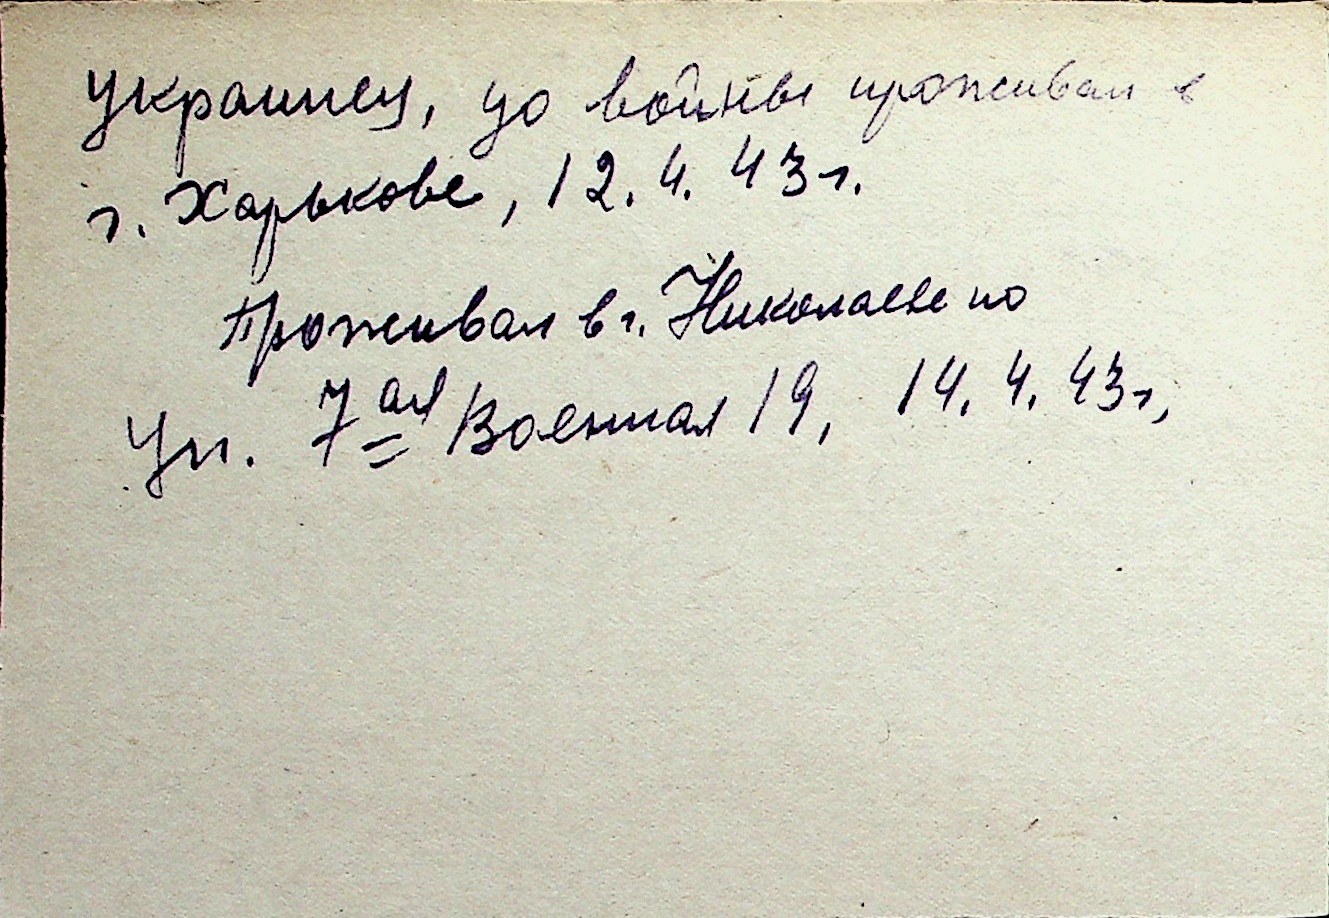 украинец, до войны проживал в
г. Харькове, 12.4.43г.
Проживал в г. Николаеве по
ул. 7ая Военная 19, 14.4.43г,